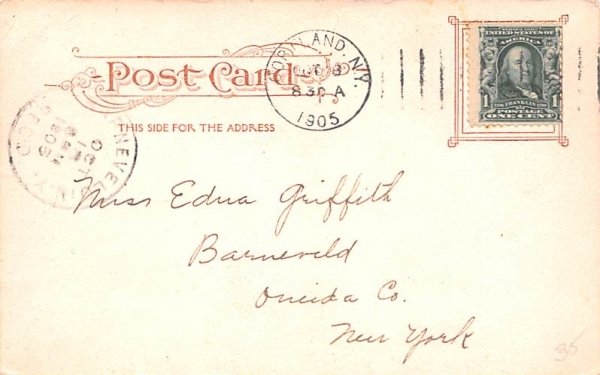 Post Card
CORTLAND, N.Y.
OCT
8 30 A
1905
UNITED STATES OF
AMERICA
1 FRANKLIN 1
POSTAGE
ONE CENT
THIS SIDE FOR THE ADDRESS
BARNEVELD N.Y.
OCT
Miss Edna Griffith
Barneveld
Oneida Co.
New York
35